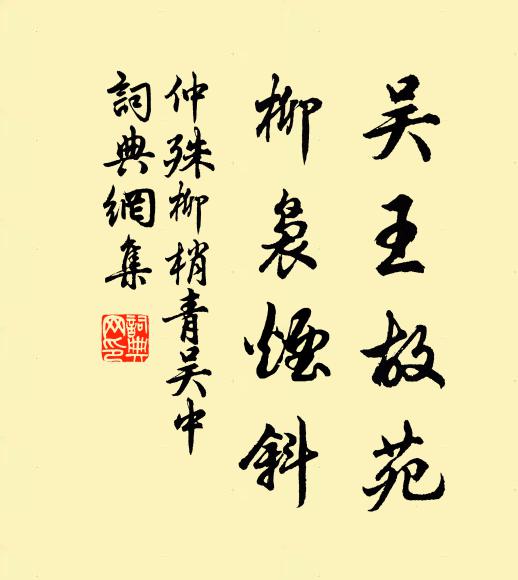 吴王故苑
柳袅煙斜
仲殊柳梢青吴中
詞典網集
詞典
网印